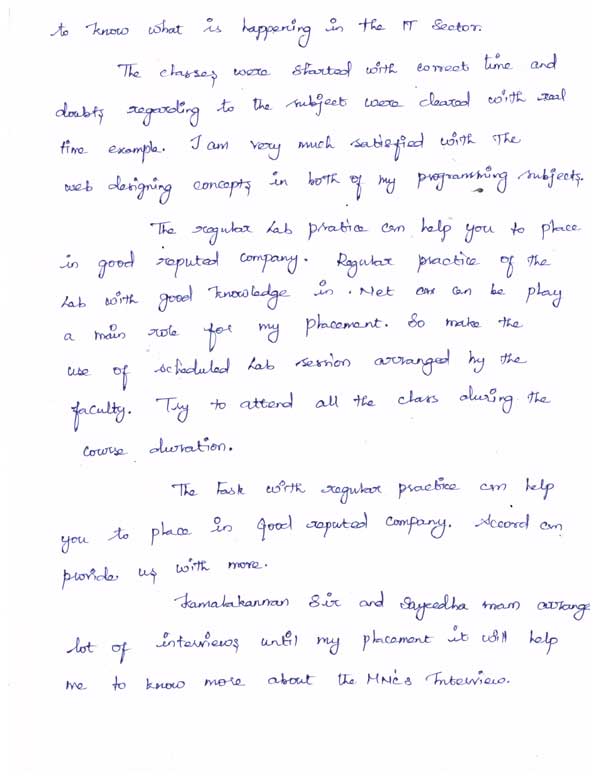 to know what is happening in the IT Sector.
The classes were started with correct time and
doubts regarding to the subject were cleared with real
time example. I am very much satisfied with The
web designing concepts in both of my programming subjects.
The regular Lab pratice can help you to place
in good reputed company. Regular practice of the
Lab with good knowledge in .Net can be play
a main role for my placement. So make the
use of scheduled Lab session arranged by the
faculty. Try to attend all the class during the
course duration.
The task with regular practice can help
you to place in good reputed company. Accord can
provide us with more.
Kamalakannan Sir and Sayeedha mam arrange
lot of interviews until my placement it will help
me to know more about the MNC's Interview.